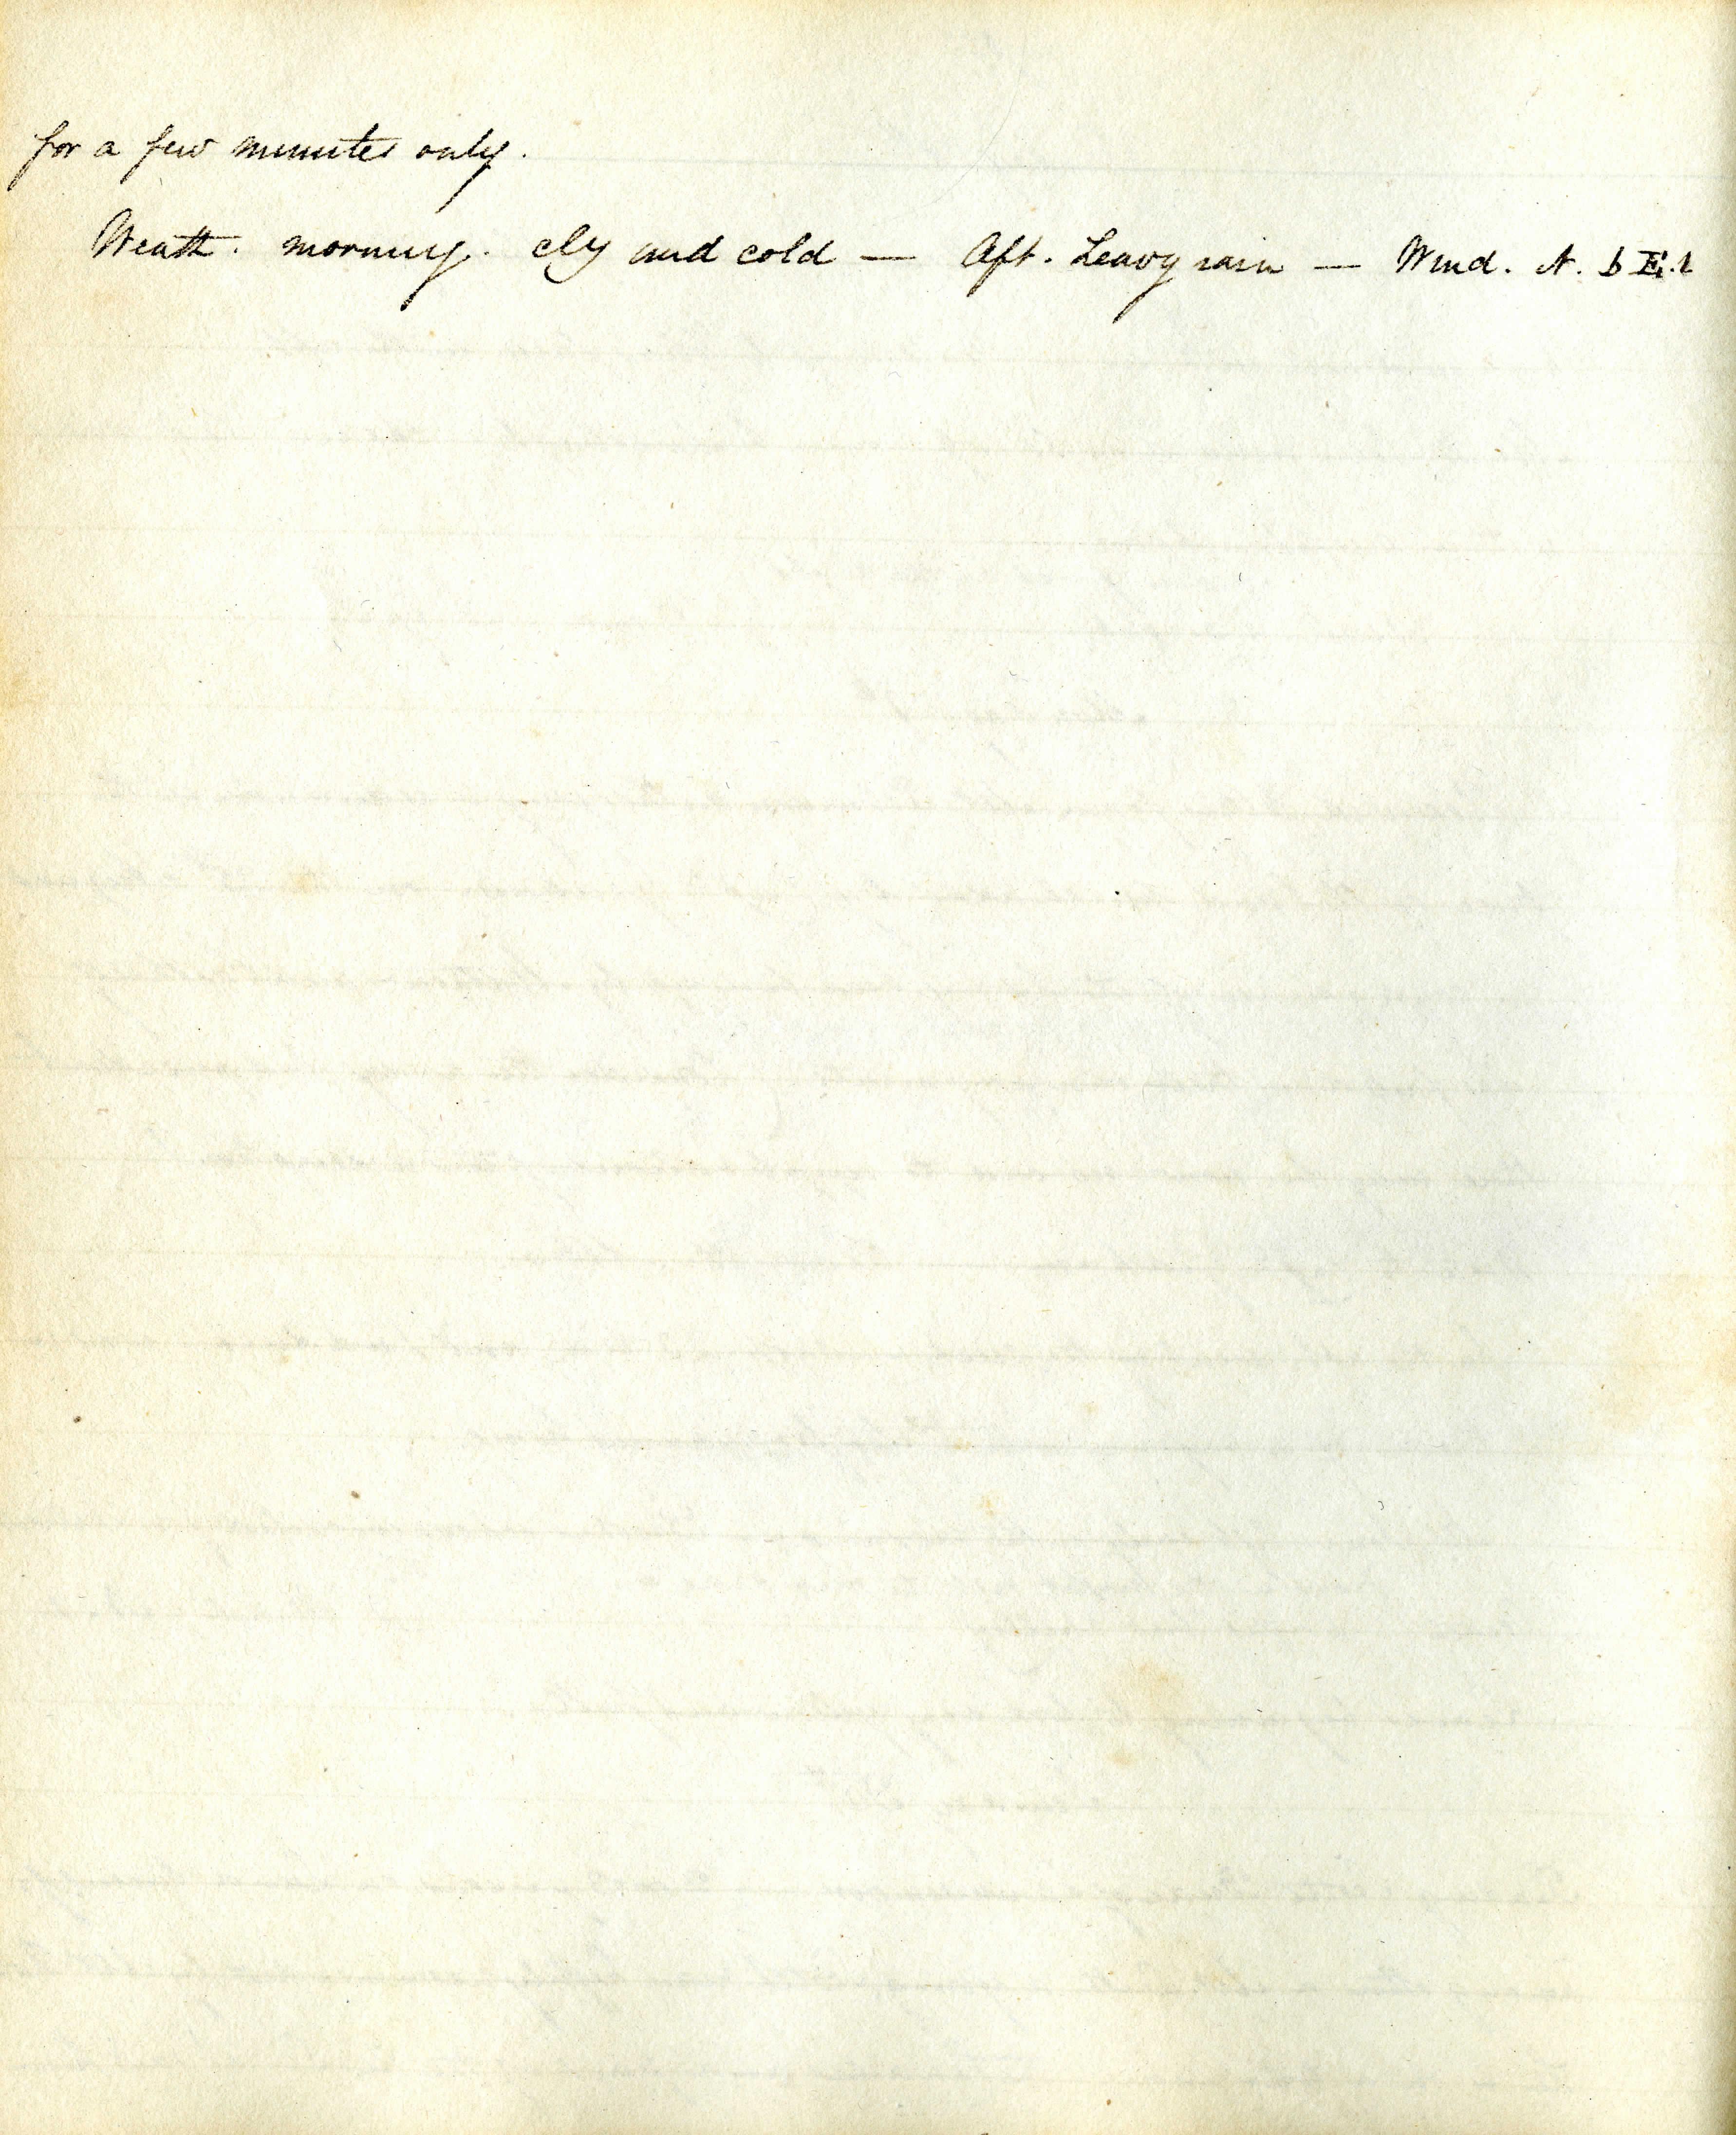 for a few minutes only.
Weath. morning. cly and cold — Aft. heavy rain — Wind. N. b E.